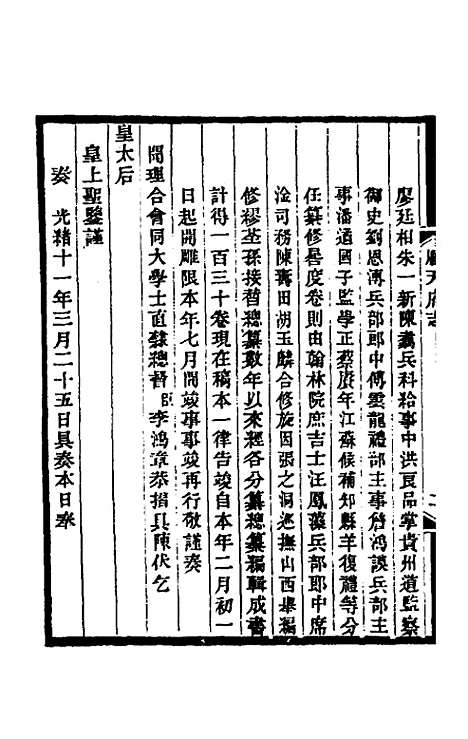 順天府志
廖廷相朱一新陳翥兵科給事中洪良品掌貴州道監察
御史劉恩溥兵部郎中傅雲龍禮部主事詹鴻謨兵部主
事潘遹國子監學正蔡賡年江蘇候補知縣羊復禮等分
任纂修晷度卷則由翰林院庶吉士汪鳳藻兵部郎中席
淦司務陳壽田胡玉麟合修旋因張之洞巡撫山西舉編
修繆荃孫接替總纂數年以來經各分纂總纂編輯成書
計得一百三十卷現在稿本一律告竣自本年二月初一
日起開雕限本年七月間竣事事竣再行敬謹奏
聞理合會同大學士直隸總督臣李鴻章恭摺具陳伏乞
皇太后
皇上聖鑒謹
奏 光緒十一年三月二十五日具奏本日奉